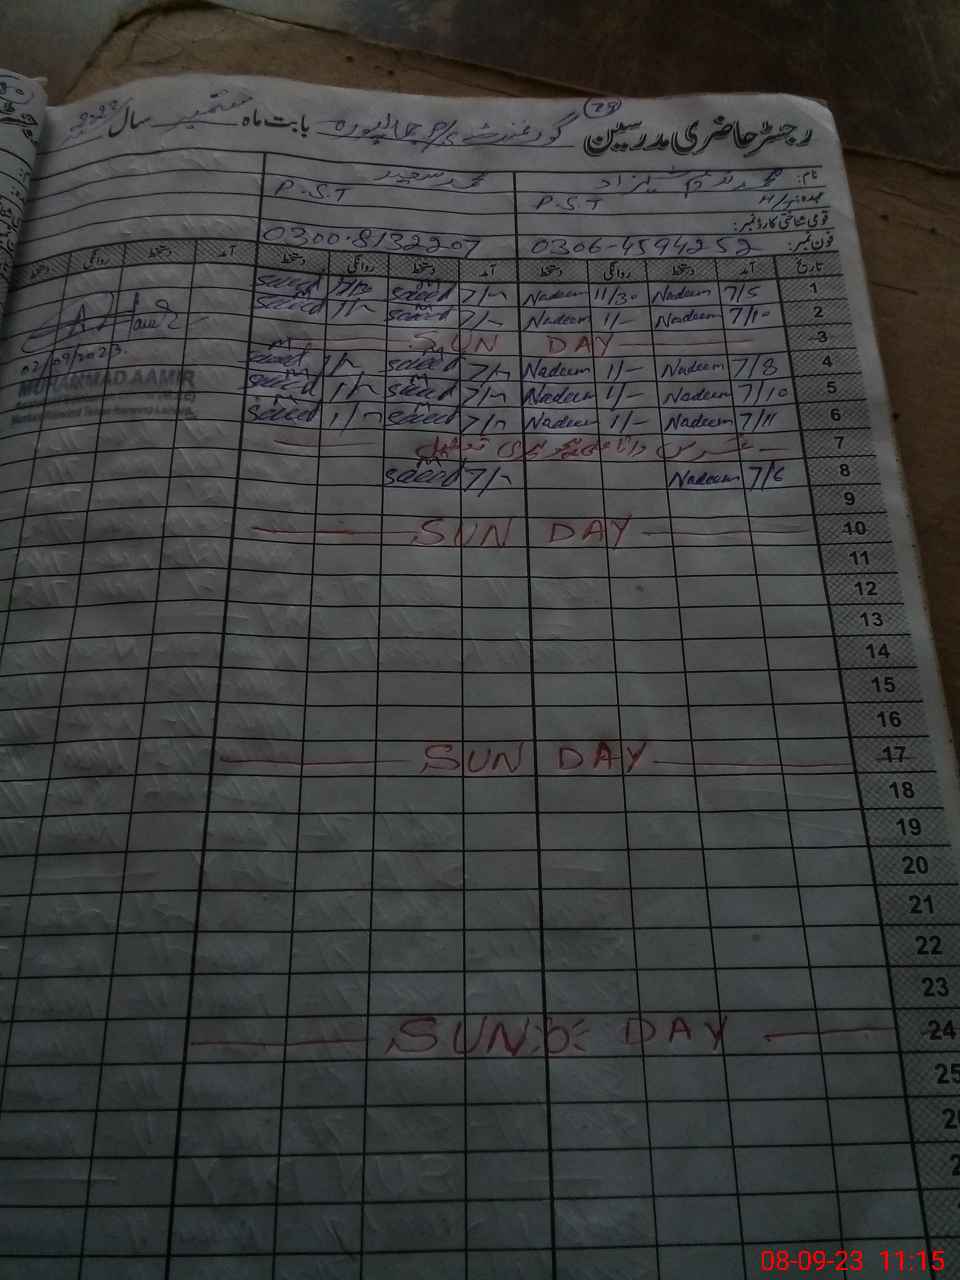 (79)
رجسٹر حاضری مدرسین گورنمنٹ P/S جمالپورہ بابت ماہ ستمبر سال 2023
نام: محمد ندیم شہزاد محمد سعید
عہدہ P.S.T P.S.T
قومی شناختی کارڈ نمبر:
فون نمبر: 0306-4594252 0300-8132207
تاریخ آمد دستخط روانگی دستخط آمد دستخط روانگی دستخط آمد دستخط روانگی دستخط
1 7/5 Nadeem 11/30 Nadeem 7/- saeed saeed
2 7/10 Nadeem 1/- Nadeem 7/- saeed 1/- saeed
3 SUN DAY
4 7/8 Nadeem 1/- Nadeem 7/- saeed 1/- saeed
5 7/10 Nadeem 1/- Nadeem 7/- saeed 1/- saeed
6 7/11 Nadeem 1/- Nadeem 7/- saeed 1/- saeed
7 عرس داتا تعطیل
8 7/6 Nadeem 7/- saeed
9
10 SUN DAY
11
12
13
14
15
16
17 SUN DAY
18
19
20
21
22
23
24 SUN DAY
25
02/09/2023.
MUHAMMAD AAMIR
08-09-23 11:15